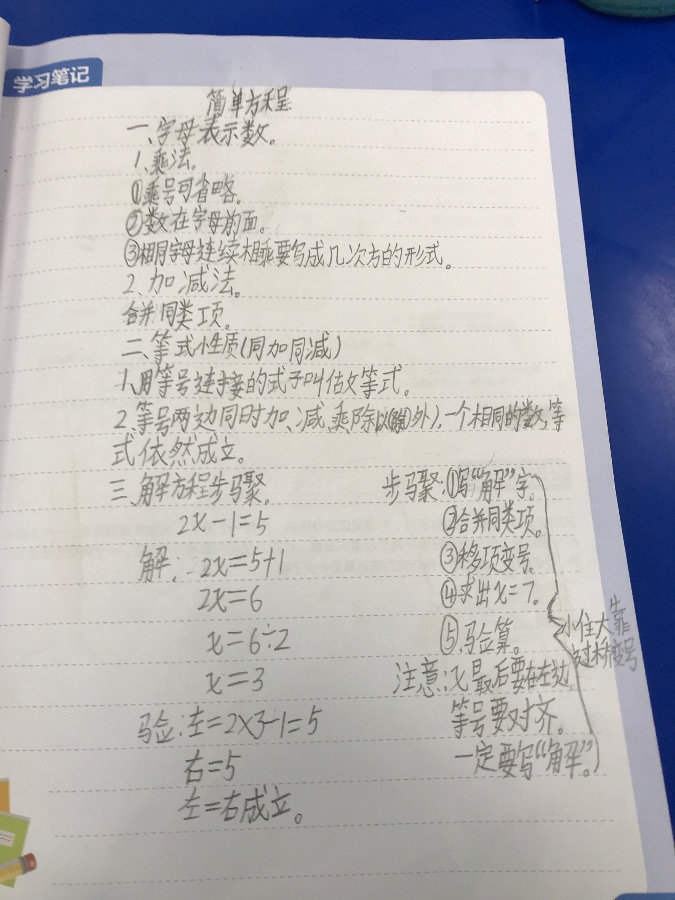 学习笔记
简单方程
一、字母表示数。
1、乘法。
①乘号可省略。
②数在字母前面。
③相同字母连续相乘要写成几次方的形式。
2、加减法。
合并同类项。
二、等式性质(同加同减)
1、用等号连接的式子叫做等式。
2、等号两边同时加、减、乘、除以(除外),一个相同的数,等
式依然成立。
三、解方程步骤。
2x-1=5
解:2x=5+1
2x=6
x=6÷2
x=3
验:左=2×3-1=5
右=5
左=右成立。
步骤:①写“解”字。
②合并同类项。
③移项变号。
④求出x=?。
⑤验算。
注意:x最后要在左边。
等号要对齐。
一定要写“解”。
小往大靠
过桥变号